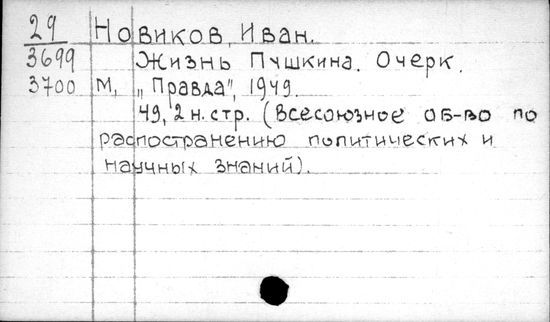 29 Новиков, Иван.
3699 Жизнь Пушкина. Очерк.
3700 М, „Правда", 1949.
49, 2 н. стр. (Всесоюзное об-во по
распостранению политических и
научных знаний).